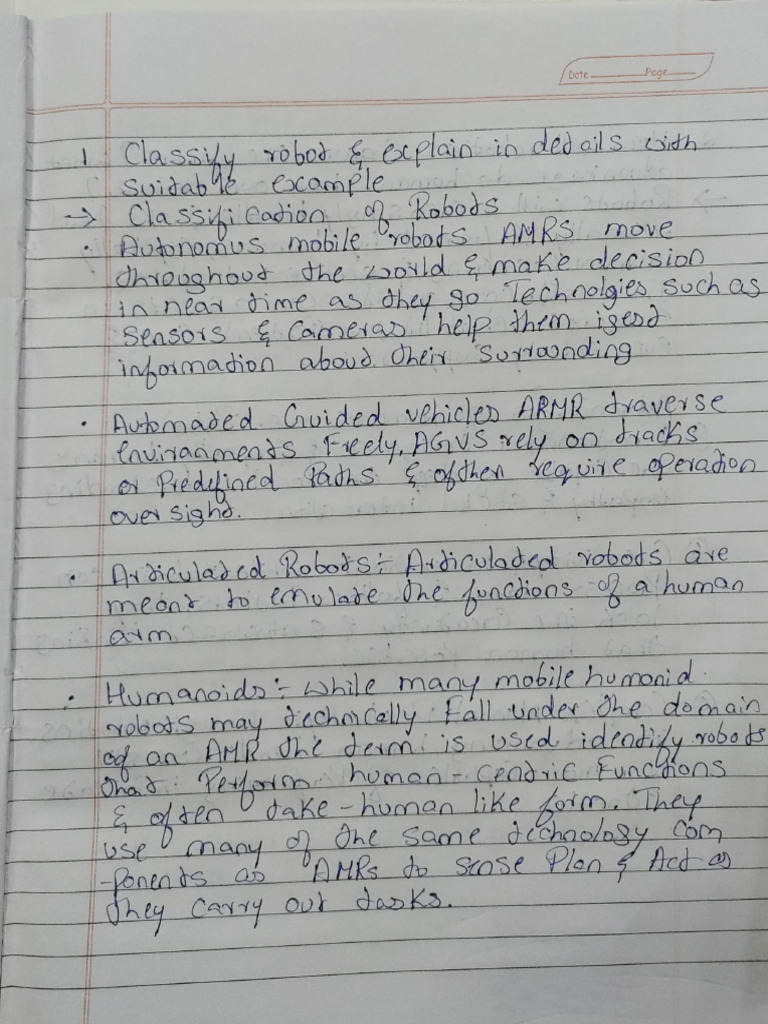 Date Page
1 Classify robot & explain in details with
suitable example
→ Classification of Robots
• Autonomus mobile robots AMRS move
throughout the world & make decision
in near time as they go Technolgies such as
sensors & cameras help them igest
information about their surrounding
• Automated Guided vehicles ARMR traverse
environments Freely, AGVS rely on tracks
or Predefined Paths & ofthen require operation
oversight.
• Articulated Robots:- Articulated robots are
meant to emulate the functions of a human
arm
• Humanoids:- while many mobile humonid
robots may technically Fall under the domain
of an AMR the term is used identify robots
that Perform human-centric Functions
& often take-human like form. They
use many of the same technology com
-ponents as AMRs to sense Plan & Act as
they carry out tasks.